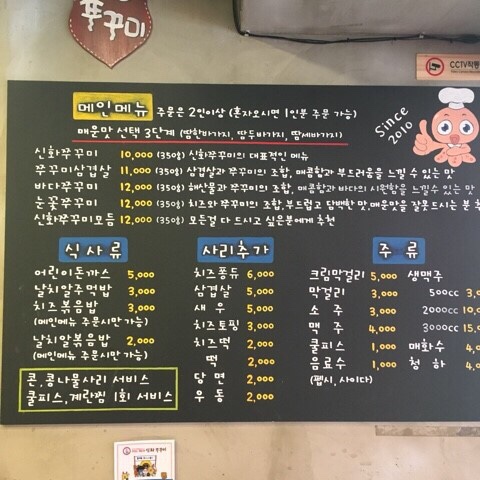 쭈꾸미
CCTV작동
메인메뉴 주문은 2인이상 (혼자오시면 1인분 주문 가능)
매운맛 선택 3단계 (땀한바가지, 땀두바가지, 땀세바가지)
Since 2010
신화쭈꾸미 10,000 (350g) 신화쭈꾸미의 대표적인 메뉴
쭈꾸미삼겹살 11,000 (350g) 삼겹살과 쭈꾸미의 조합, 매콤함과 부드러움을 느낄 수 있는 맛
바다쭈꾸미 12,000 (350g) 해산물과 쭈꾸미의 조합, 매콤함과 바다의 시원함을 느낄수 있는 맛
눈꽃쭈꾸미 12,000 (350g) 치즈와 쭈꾸미의 조합,부드럽고 담백한 맛,매운맛을 잘못드시는 분
신화쭈꾸미모듬 12,000 (350g) 모든걸 다 드시고 싶은분에게 추천
식사류
어린이돈까스 5,000
날치알주먹밥 3,000
치즈볶음밥 3,000
(메인메뉴 주문시만 가능)
날치알볶음밥 2,000
(메인메뉴 주문시만 가능)
콘, 콩나물사리 서비스
쿨피스, 계란찜 1회 서비스
사리추가
치즈퐁듀 6,000
삼겹살 5,000
새우 5,000
치즈토핑 3,000
치즈떡 2,000
떡 2,000
당면 2,000
우동 2,000
주류
크림막걸리 5,000 생맥주
막걸리 3,000 500cc
소주 3,000 2000cc
맥주 4,000 3000cc
쿨피스 1,000 매화수
음료수 1,000 청하
(펩시, 사이다)